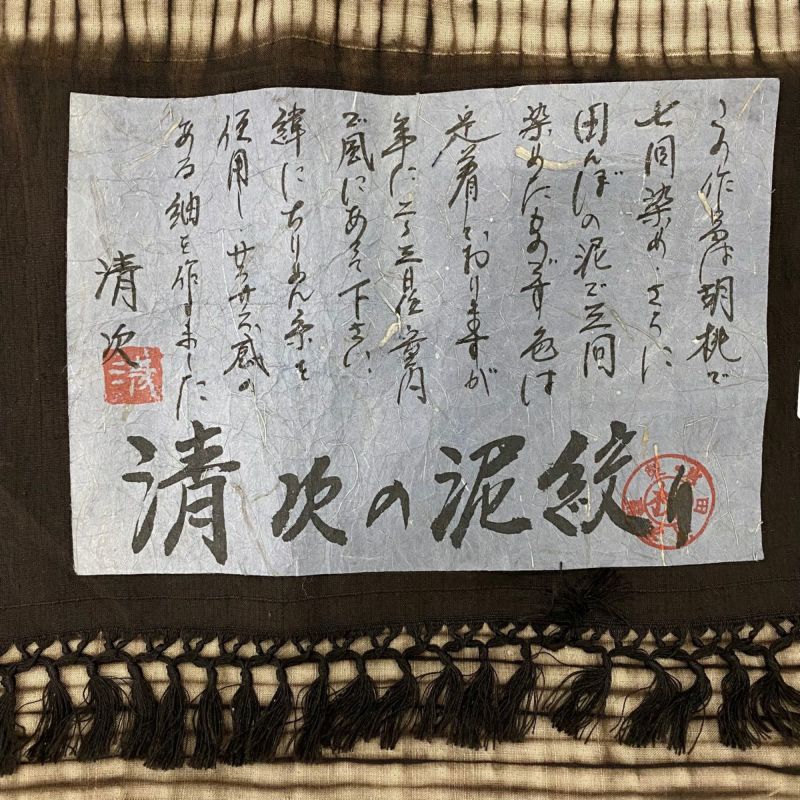 この作品は胡桃で
七回染め、さらに
田んぼの泥で三回
染めたものです色は
定着しておりますが
年に二、三日位室内
で風にあてて下さい、
緯にちりめん糸を
使用し、サラサラ感の
ある紬を作りました
清次
清次の泥絞り